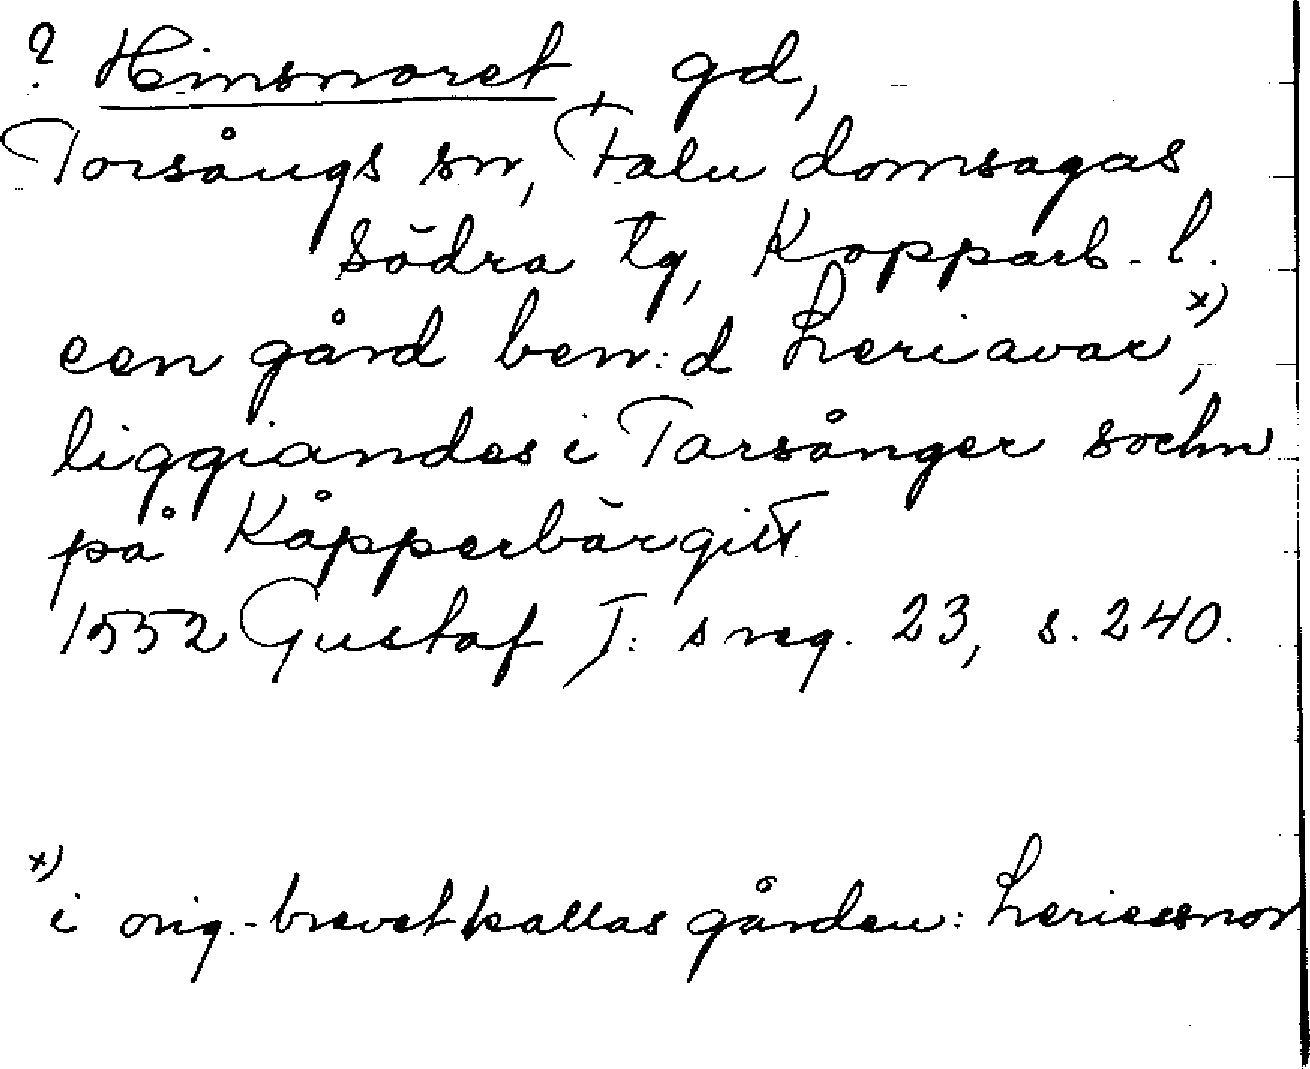 ? Hinsnoret, gd,
Torsångs sn, Falu domsagas
södra tg, Kopparb. l.
een gård ben:d Leriavar x),
liggiandes i Tarsånger sochn
på Kåpperbärgitt
1552 Gustaf I: s reg. 23, s. 240.
x) i orig.-brevet kallas gården: Leriessnor